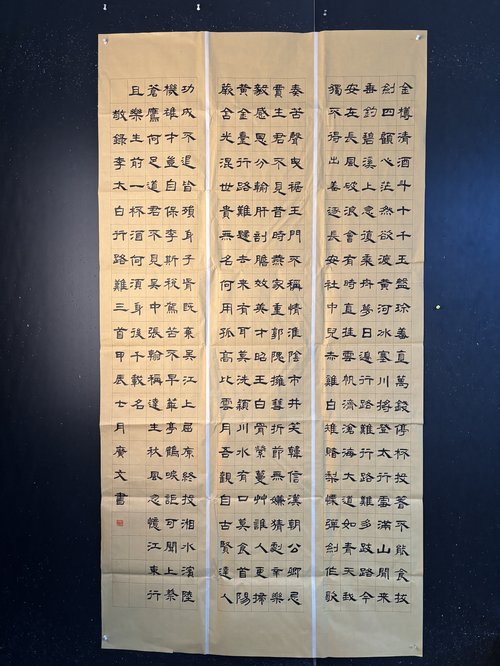 金樽清酒斗十千玉盤珍羞直萬錢停杯投箸不能食拔
劍四顧心茫然欲渡黃河冰塞川將登太行雪滿山閒來
垂釣碧溪上忽復乘舟夢日邊行路難行路難多歧路今
安在長風破浪會有時直挂雲帆濟滄海大道如青天我
獨不得出羞逐長安社中兒赤雞白雉賭梨栗彈劍作歌
奏苦聲曳裾王門不稱情淮陰市井笑韓信漢朝公卿忌
賈生君不見昔時燕家重郭隗擁篲折節無嫌猜劇辛樂
毅感恩分輸肝剖膽效英才昭王白骨縈蔓艸誰人更掃
黃金臺行路難歸去來有耳莫洗潁川水有口莫食首陽
蕨含光混世貴無名何用孤高比雲月吾觀自古賢達人
功成不退皆殞身子胥既棄吳江上屈原終投湘水濱陸
機雄才豈自保李斯稅駕苦不早華亭鶴唳詎可聞上蔡
蒼鷹何足道君不見吳中張翰稱達生秋風忽憶江東行
且樂生前一杯酒何須身後千載名
敬錄李太白行路難三首甲辰七月文書